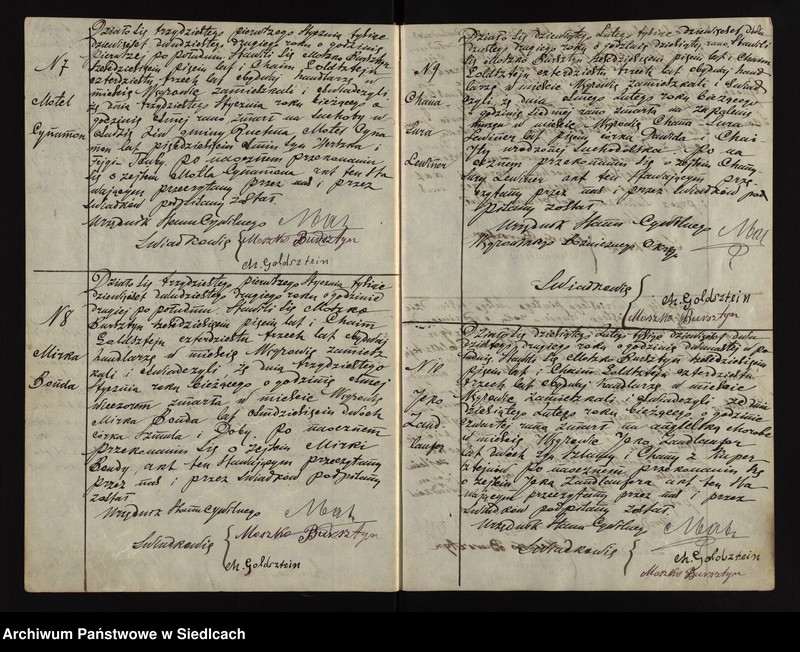 N7
Motel
Cynamon
Działo się trzydziestego pierwszego Stycznia tysiąc
dziewięćset dwudziestego drugiego roku o godzinie
pierwszej po południu. Stawili się Moszko Bursztyn
sześćdziesięciu pięciu lat i Chaim Goldsztejn
czterdziestu trzech lat obydwaj handlarze w
mieście Węgrowie zamieszkali i oświadczyli,
że dnia trzydziestego Stycznia roku bieżącego o
godzinie ósmej rano zmarł na suchoty w
gminy Ruchna Motel Cyna-
mon lat pięćdziesiąt syn Herszka i
Po naocznem przekonaniu
się o zejściu Motla Cynamona akt ten sta-
wającym przeczytany przez nas i przez
świadków podpisany został.
Urzędnik Stanu Cywilnego
Świadkowie Moszko Bursztyn
Ch. Goldsztein
N8
Mirka
Bonda
Działo się trzydziestego pierwszego Stycznia tysiąc
dziewięćset dwudziestego drugiego roku o godzinie
drugiej po południu. Stawili się Moszko
Bursztyn sześćdziesięciu pięciu lat i Chaim
Goldsztejn czterdziestu trzech lat obydwaj
handlarze w mieście Węgrowie zamiesz-
kali i oświadczyli, że dnia trzydziestego
Stycznia roku bieżącego o godzinie ósmej
wieczorem zmarła w mieście Węgrowie
Mirka Bonda lat ośmdziesięciu dwóch
córka Szmula i Doby. Po naocznem
przekonaniu się o zejściu Mirki
Bondy, akt ten stawającym przeczytany
przez nas i przez świadków podpisany
został.
Urzędnik Stanu Cywilnego
Świadkowie Moszko Bursztyn
Ch. Goldsztein
N9
Chana
Sura
Lewiner
Działo się dziewiątego Lutego tysiąc dziewięćset dwu-
dziestego drugiego roku o godzinie dziesiątej rano. Stawili
się Moszko Bursztyn sześćdziesięciu pięciu lat i Chaim
Goldsztejn czterdziestu trzech lat obydwaj hand-
larze w mieście Węgrowie zamieszkali i oświad-
czyli, że dnia ósmego Lutego roku bieżącego
o godzinie siódmej rano zmarła na zapalenie
mózgu w mieście Węgrowie Chana Sura
Lewiner lat pięciu córka Dawida i Chai-
urodzonej Suchodolska. Po na-
ocznem przekonaniu się o zejściu Chany
Sury Lewiner akt ten stawającym prze-
czytany przez nas i przez świadków pod-
pisany został.
Urzędnik Stanu Cywilnego
Węgrowskiego Bożniczego Okręgu
Świadkowie Ch. Goldsztein
Moszko Bursztyn
N10
Icko
Land
laufer
Działo się dziesiątego Lutego tysiąc dziewięćset dwu-
dziestego drugiego roku o godzinie dwunastej po
Stawili się Moszko Bursztyn sześćdziesięciu
pięciu lat i Chaim Goldsztejn czterdziestu
trzech lat obydwaj handlarze w mieście
Węgrowie zamieszkali i oświadczyli, że dnia
dziesiątego Lutego roku bieżącego o godzinie
czwartej rano zmarł na angielską chorobę
w mieście Węgrowie Icko Landlaufer
lat dwóch syn Szlamy i Chany z Kuper-
Po naocznem przekonaniu się
o zejściu Icka Landlaufera akt ten sta-
wającym przeczytany przez nas i przez
świadków podpisany został.
Urzędnik Stanu Cywilnego
Świadkowie Ch. Goldsztein
Moszko Bursztyn
Archiwum Państwowe w Siedlcach